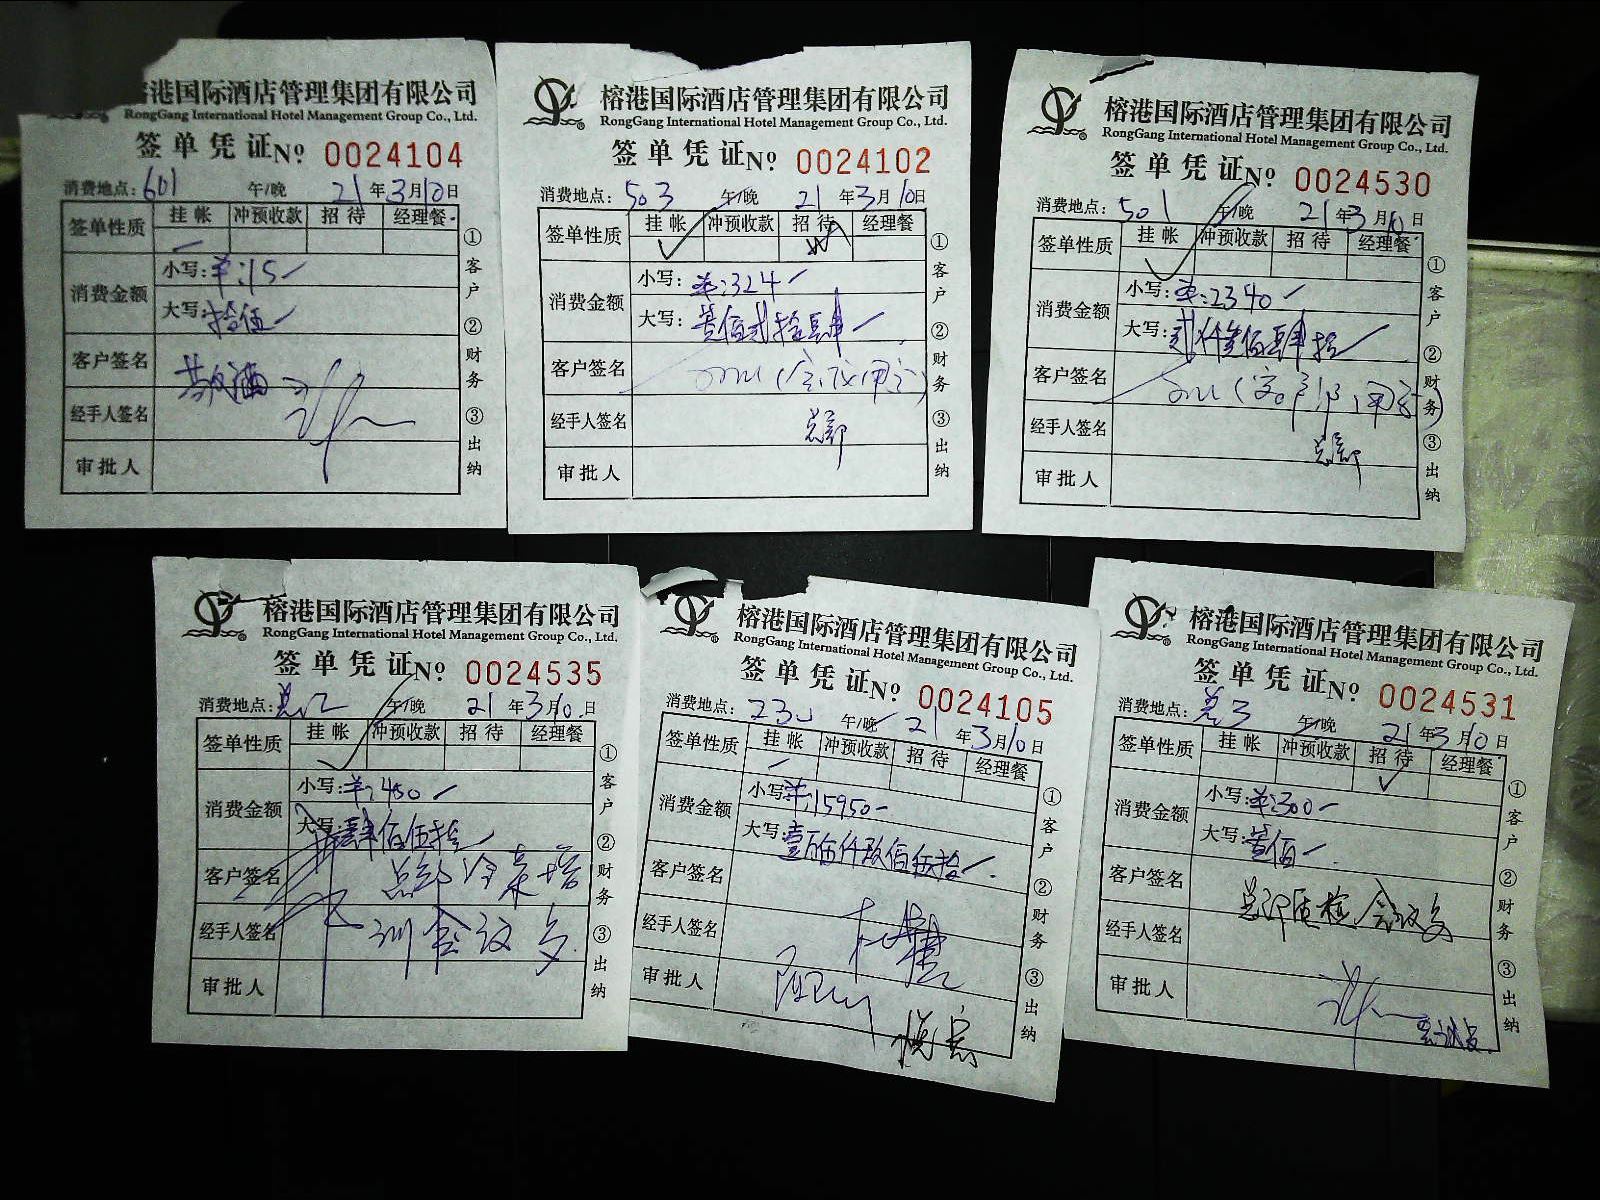 榕港国际酒店管理集团有限公司
RongGang International Hotel Management Group Co., Ltd.
签单凭证 № 0024104
消费地点:601 午/晚 21年3月10日
签单性质 挂帐 冲预收款 招待 经理餐
消费金额 小写:¥:15
大写:拾伍
客户签名
经手人签名
审批人
①客户 ②财务 ③出纳
榕港国际酒店管理集团有限公司
RongGang International Hotel Management Group Co., Ltd.
签单凭证 № 0024102
消费地点:503 午/晚 21年3月10日
签单性质 挂帐 冲预收款 招待 经理餐
消费金额 小写:¥:324
大写:佰贰拾肆
客户签名
经手人签名 总部
审批人
①客户 ②财务 ③出纳
榕港国际酒店管理集团有限公司
RongGang International Hotel Management Group Co., Ltd.
签单凭证 № 0024530
消费地点:501 午/晚 21年3月10日
签单性质 挂帐 冲预收款 招待 经理餐
消费金额 小写:¥:2340
大写:贰仟叁佰肆拾
客户签名
经手人签名 总部
审批人
①客户 ②财务 ③出纳
榕港国际酒店管理集团有限公司
RongGang International Hotel Management Group Co., Ltd.
签单凭证 № 0024535
消费地点: 午/晚 21年3月10日
签单性质 挂帐 冲预收款 招待 经理餐
消费金额 小写:¥:450
大写:肆佰伍拾
客户签名 总部
经手人签名 训会议
审批人
①客户 ②财务 ③出纳
榕港国际酒店管理集团有限公司
RongGang International Hotel Management Group Co., Ltd.
签单凭证 № 0024105
消费地点: 午/晚 21年3月10日
签单性质 挂帐 冲预收款 招待 经理餐
消费金额 小写:¥:15950
大写:壹万伍仟玖佰伍拾
客户签名
经手人签名
审批人
①客户 ②财务 ③出纳
榕港国际酒店管理集团有限公司
RongGang International Hotel Management Group Co., Ltd.
签单凭证 № 0024531
消费地点: 午/晚 21年3月10日
签单性质 挂帐 冲预收款 招待 经理餐
消费金额 小写:¥:300
大写:佰
客户签名 总部质检会议
经手人签名
审批人
①客户 ②财务 ③出纳